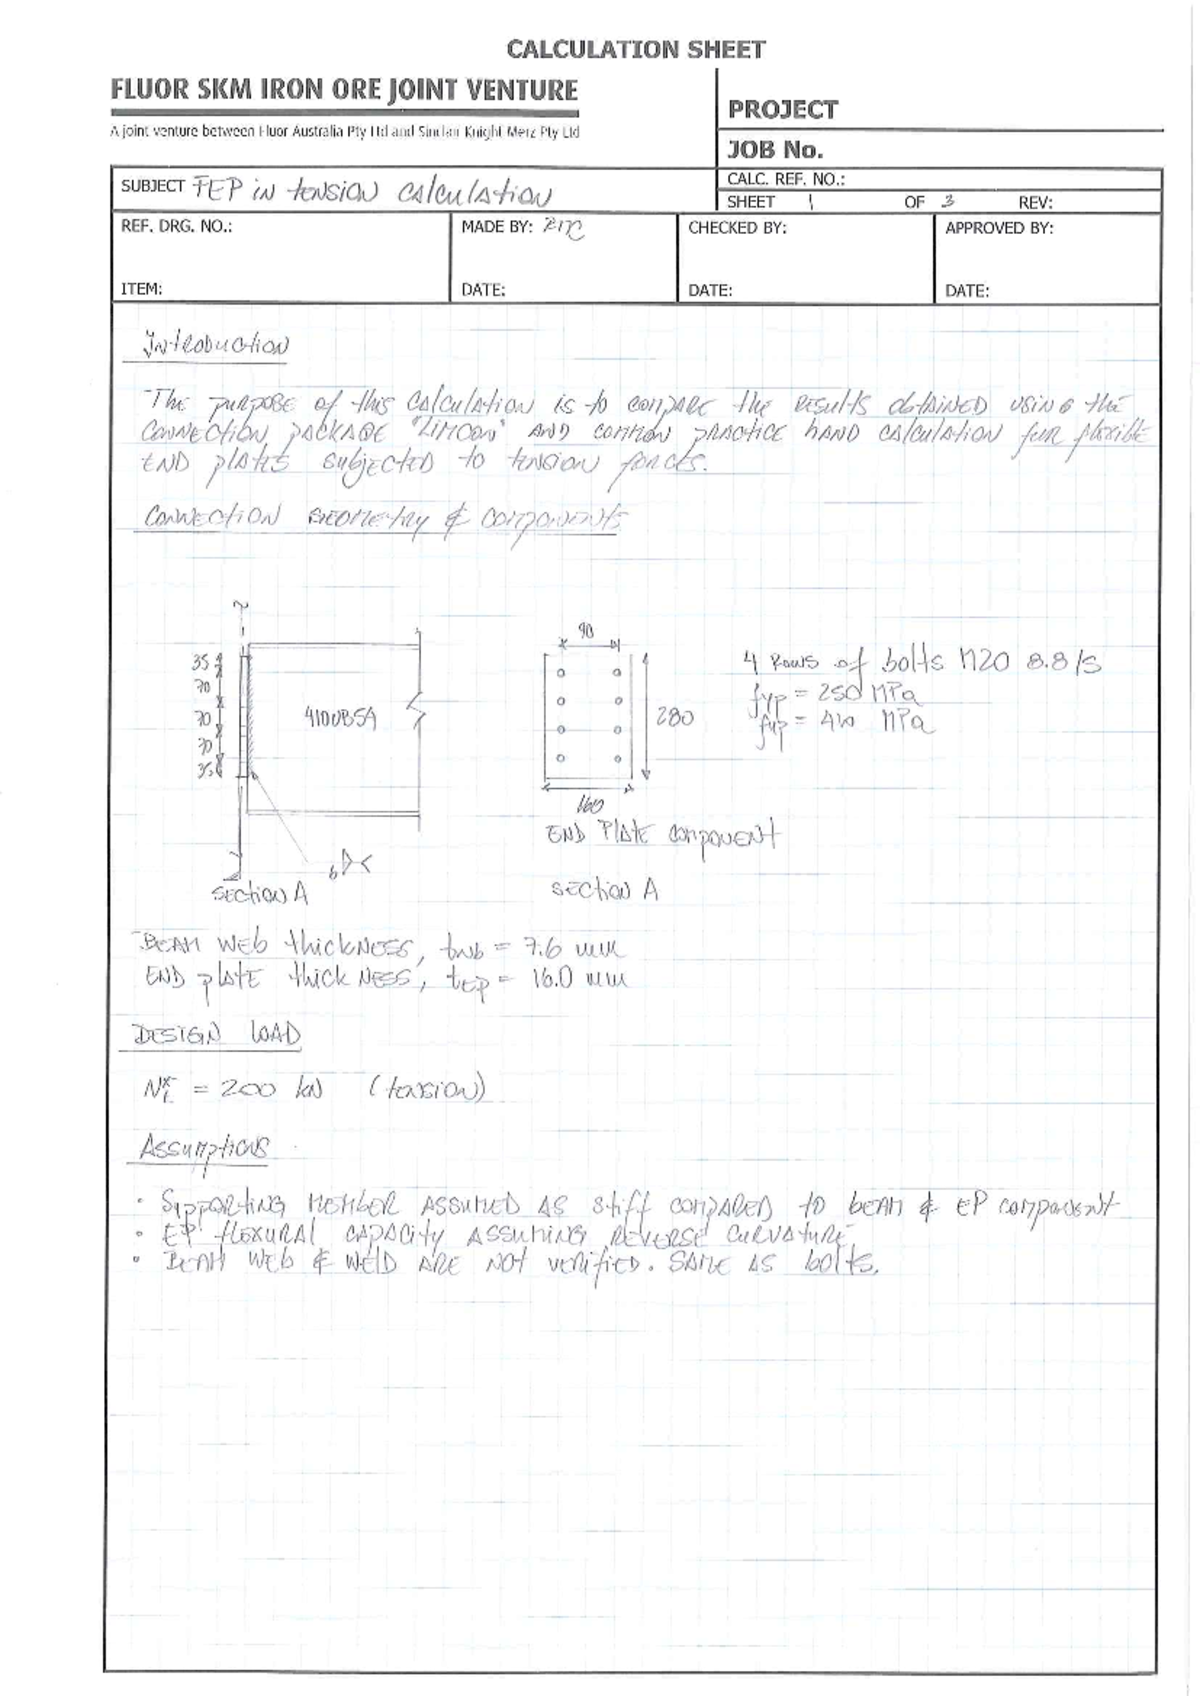 CALCULATION SHEET
FLUOR SKM IRON ORE JOINT VENTURE
A joint venture between Fluor Australia Pty Ltd and Sinclair Knight Merz Pty Ltd
PROJECT
JOB No.
SUBJECT FEP in tension calculation
CALC. REF. NO.:
SHEET 1 OF 3 REV:
REF. DRG. NO.:
MADE BY:
CHECKED BY:
APPROVED BY:
ITEM:
DATE:
DATE:
DATE:
Introduction
The purpose of this calculation is to compare the results obtained using the
connection package "LIMCON" and common practice hand calculation for flexible
end plates subjected to tension forces.
Connection geometry & components
35
70
70
70
35
410UB54
6
Section A
90
280
160
End plate component
Section A
4 rows of bolts M20 8.8/S
fyp = 250 MPa
fup = 410 MPa
Beam web thickness, twb = 7.6 mm
End plate thickness, tep = 16.0 mm
Design load
N*t = 200 kN (tension)
Assumptions
• Supporting member assumed as stiff compared to beam & EP component
• EP flexural capacity assuming reverse curvature
• Beam web & weld are not verified. Same as bolts.